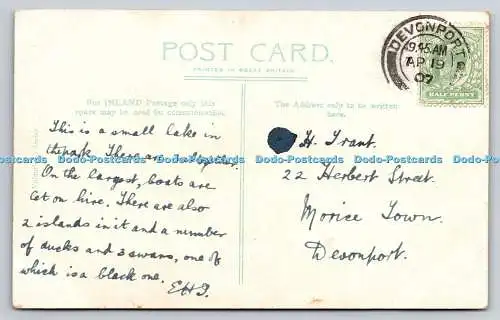 POST CARD.
PRINTED IN GREAT BRITAIN
For INLAND Postage only this
space may be used for communication.
The Address only to be written
here.
DEVONPORT
9.45 AM
AP 19
07
HALF PENNY
This is a small lake in
the park. There are
On the largest, boats are
let on hire. There are also
2 islands in it and a number
of ducks and 3 swans, one of
which is a black one.
H. Trant.
22 Herbert Street.
Morice Town.
Devonport.
Dodo-Postcards Dodo-Postcards Dodo-Postcards Dodo-Postcards Dodo-Postcards Dodo-Postcards